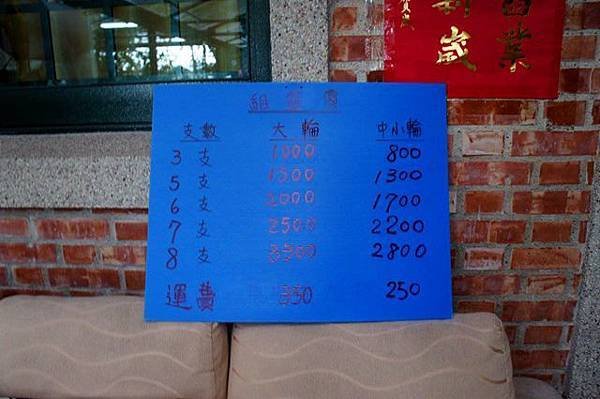 業
歲
組盤價
支數 大輪 中小輪
3支 1000 800
5支 1500 1300
6支 2000 1700
7支 2500 2200
8支 3500 2800
運費 350 250